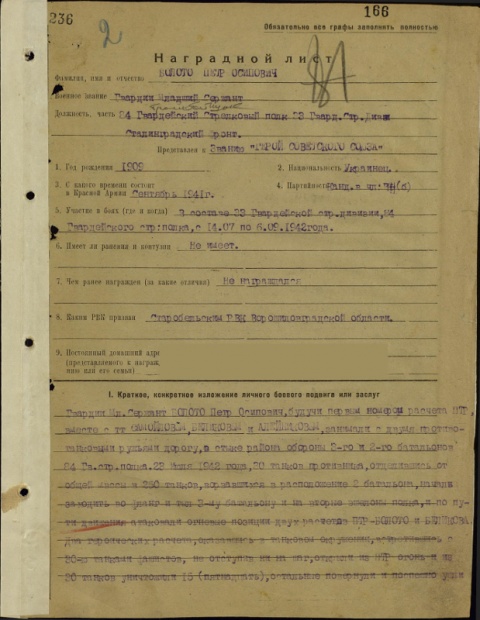 236
166
2
Обязательно все графы заполнить полностью
Наградной лист
Фамилия, имя и отчество БОЛОТО ПЕТР ОСИПОВИЧ
Военное звание Гвардии Младший Сержант
Должность, часть 84 Гвардейский Стрелковый полк 33 Гвард.Стр.Дивиз
Сталинградский фронт.
Представлен к Званию "ГЕРОЙ СОВЕТСКОГО СОЮЗА"
1. Год рождения 1909
2. Национальность Украинец.
3. С какого времени состоит
в Красной Армии Сентябрь 1941г.
4. Партийность Канд. в чл. (б)
5. Участие в боях (где и когда) В составе 33 Гвардейской стр.дивизии, 84
Гвардейского стр.полка, с 14.07 по 6.09.1942года.
6. Имеет ли ранения и контузии Не имеет.
7. Чем ранее награжден (за какие отличия) Не награждался
8. Каким РВК призван Старобельским РВК Ворошиловградской области.
9. Постоянный домашний адрес
(представляемого к награж.
или его семьи)
I. Краткое, конкретное изложение личного боевого подвига или заслуг
Гвардии Мл.Сержант БОЛОТО Петр Осипович, будучи первым номером расчета ПТР,
вместе с тт САМОЙЛОВЫМ, БЕЛИКОВЫМ и АЛЕЙНИКОВЫМ, занимали с двумя противо-
танковыми ружьями дорогу, в стыке района обороны 3-го и 2-го батальонов
84 Гв.стр.полка. 23 июля 1942 года, 30 танков противника, отделившись от
общей массы в 250 танков, ворвавшихся в расположение 2 батальона, начали
заходить во фланг и тыл 3-му батальону и на вторые эшелоны полка, и по пу-
ти движения атаковали огневые позиции двух расчетов ПТР-БОЛОТО и БЕЛИКОВА.
Два героических расчета, оказавшись в танковом окружении, встретившись с
30-ю танками фашистов, не отступив ни на шаг, открыли из ПТР огонь и из
30 танков уничтожили 15 (пятнадцать), остальные повернули и поспешно ушли